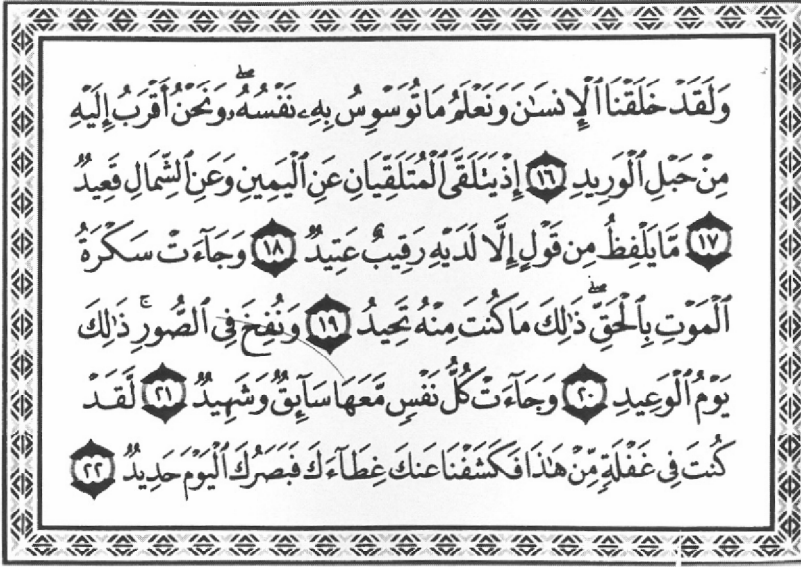 وَلَقَدْ خَلَقْنَا ٱلْإِنسَٰنَ وَنَعْلَمُ مَا تُوَسْوِسُ بِهِۦ نَفْسُهُۥۖ وَنَحْنُ أَقْرَبُ إِلَيْهِ
مِنْ حَبْلِ ٱلْوَرِيدِ ١٦ إِذْ يَتَلَقَّى ٱلْمُتَلَقِّيَانِ عَنِ ٱلْيَمِينِ وَعَنِ ٱلشِّمَالِ قَعِيدٌ
١٧ مَّا يَلْفِظُ مِن قَوْلٍ إِلَّا لَدَيْهِ رَقِيبٌ عَتِيدٌ ١٨ وَجَآءَتْ سَكْرَةُ
ٱلْمَوْتِ بِٱلْحَقِّۖ ذَٰلِكَ مَا كُنتَ مِنْهُ تَحِيدُ ١٩ وَنُفِخَ فِى ٱلصُّورِۚ ذَٰلِكَ
يَوْمُ ٱلْوَعِيدِ ٢٠ وَجَآءَتْ كُلُّ نَفْسٍ مَّعَهَا سَآئِقٌ وَشَهِيدٌ ٢١ لَّقَدْ
كُنتَ فِى غَفْلَةٍ مِّنْ هَٰذَا فَكَشَفْنَا عَنكَ غِطَآءَكَ فَبَصَرُكَ ٱلْيَوْمَ حَدِيدٌ ٢٢